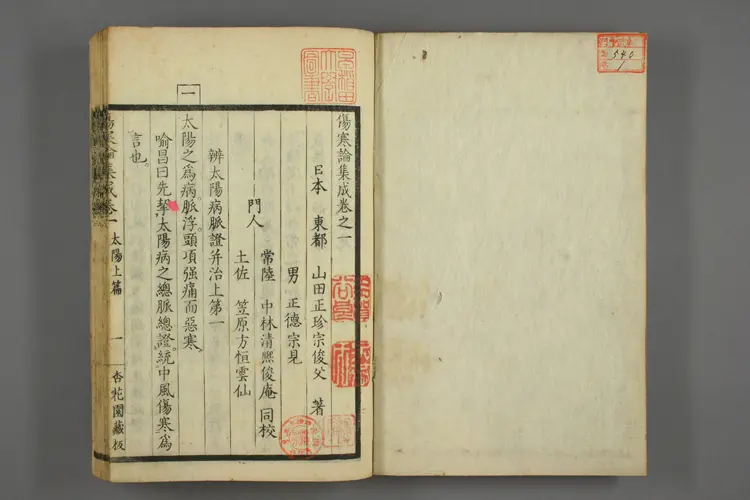 傷寒論集成卷之一
日本 東都 山田正珍宗俊父 著
男 正德宗見
門人
常陸 中林清熈俊庵 同校
土佐 笠原方恒雲仙
辨太陽病脈證并治上第一
一
太陽之爲病。脈浮。頭項强痛而惡寒。
喻昌曰先挈太陽病之總脈總證。統中風傷寒爲
言也。
傷寒論集成卷一 太陽上篇 一 杏花園藏板
540
1